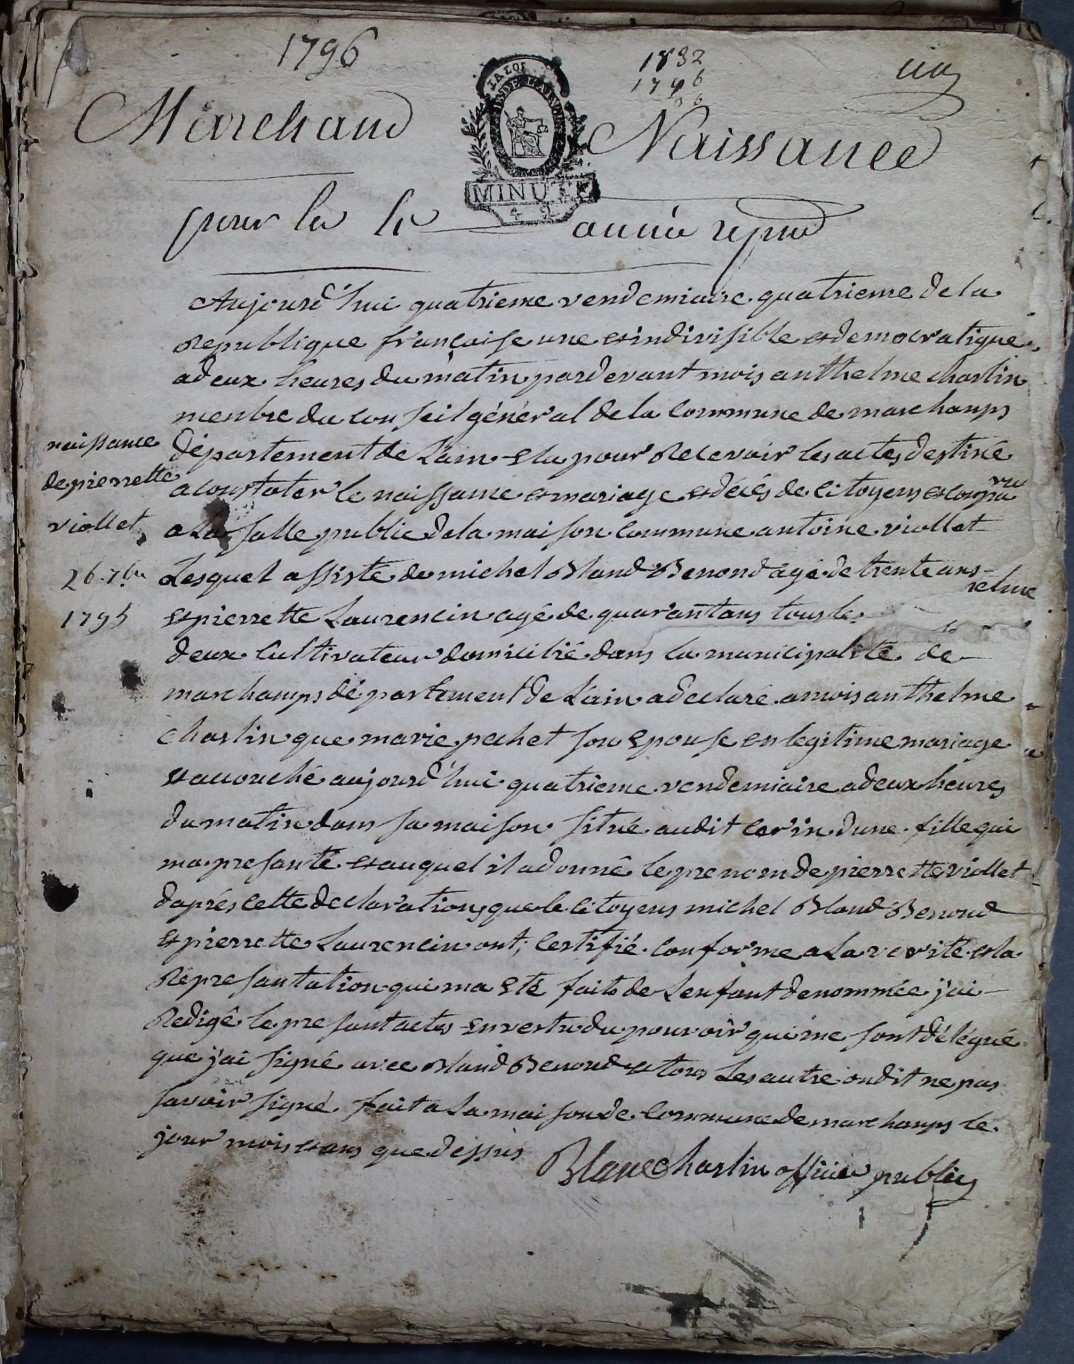 1796
1832
1796
Marchand Naissance
LA LOI
MINUTE
pour la 4e année repud
Aujourd'hui quatrieme vendemiaire quatrieme de la
Republique francaise une et indivisible et democratique
a deux heures du matin pardevant mois anthelme charlin
menbre du conseil général de la commune de marchamps
département de L'ain elu pour Recevoir les actes destiné
a constater le naissance et mariage et décés de citoyens est comparu
a La salle public de la maison commune antoine viollet
Lesquel assisté de michel Bland Benond agé de trente ans
et pierrette Laurencin agé de quarant ans tous le
deux Cultivateur domicilié dans la municipalité de
marchamps département de L'ain a declaré a mois anthelme
charlin que marie pechet son Epouse en legitime mariage
et accouché aujourd'hui quatrieme vendemiaire a deux heures
du matin dans sa maison situé audit cerin d'une fille qui
ma presanté et auquel il a donné le prenom de pierrette viollet
d'aprés cette declaration que le citoyens michel Bland Benond
et pierrette Laurencin ont certifié conforme a La verité et la
Représantation qui ma Eté faite de L'enfant denommée j'ai
Redigé le presant actes en vertu du pouvoir qui me sont délégué
que j'ai signé avec Bland Benond et tous Les autre ondit ne pas
savoir signé fait a La maison de commune de marchamps le
jour mois et ans que dessus
Blanc charlin officier public
naissance
de pierrette
viollet
26 7bre
1795